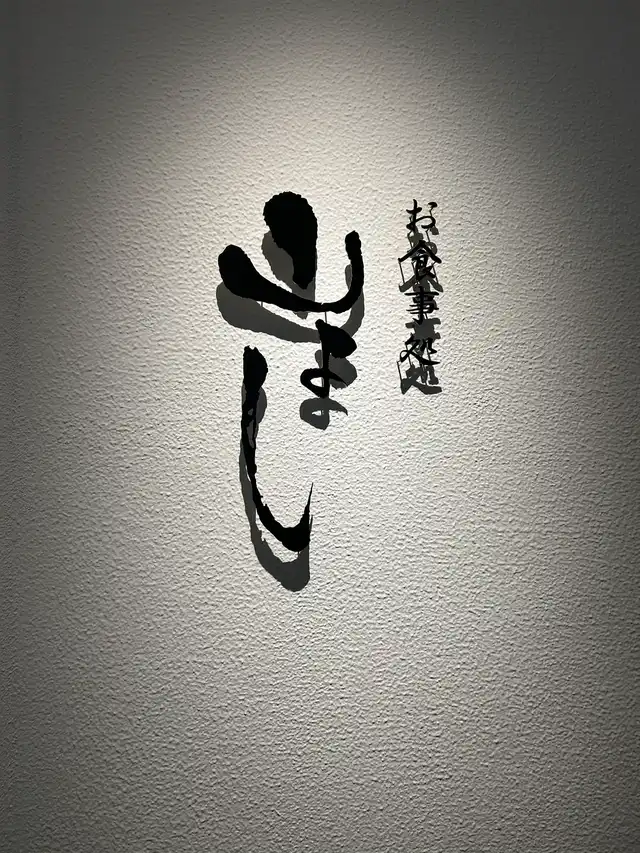 お食事処
山よし